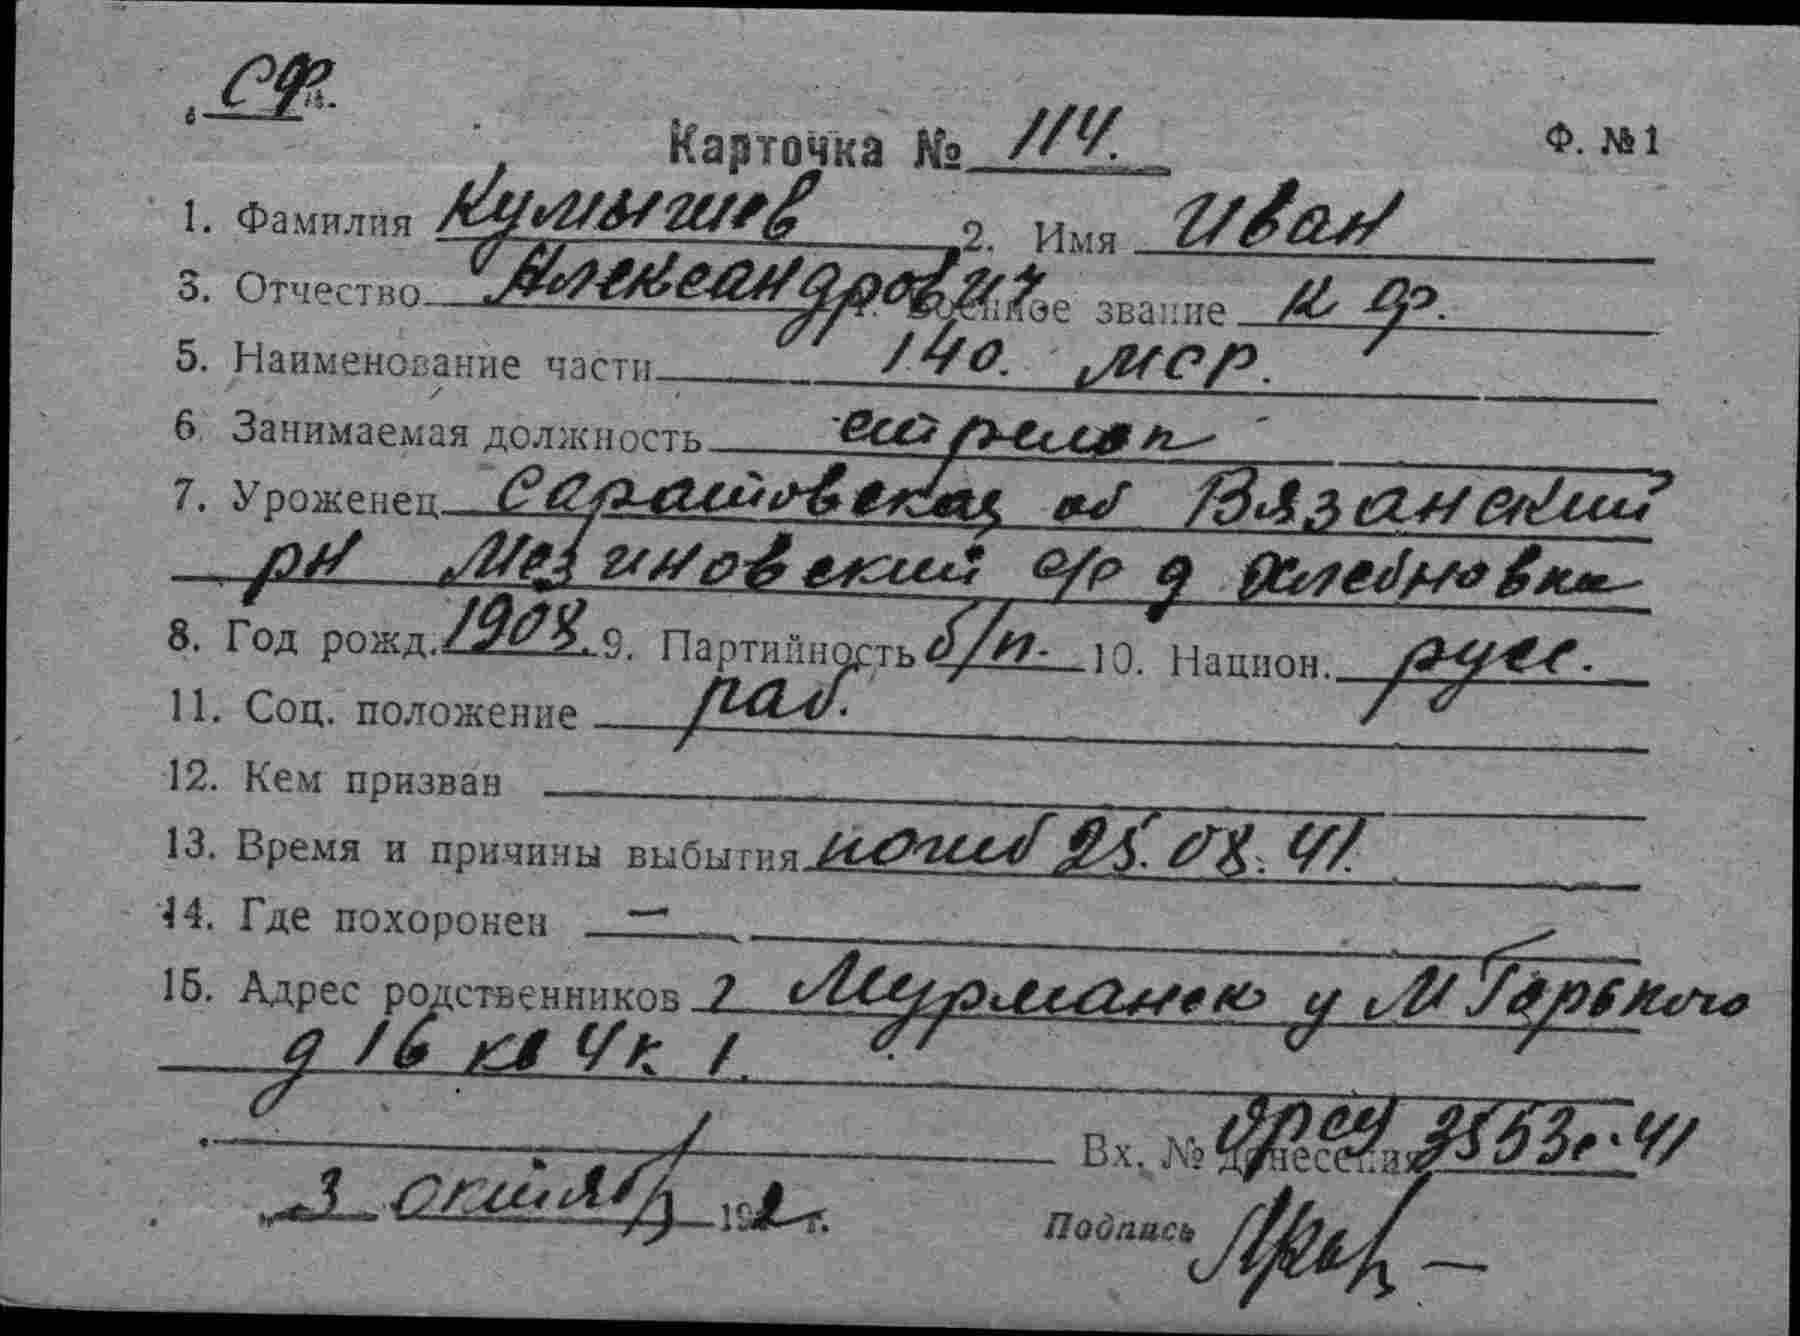 СФ.
Карточка № 114. Ф. №1
1. Фамилия Кумышев 2. Имя Иван
3. Отчество Александрович 4. Военное звание к ф.
5. Наименование части 140. мср.
6. Занимаемая должность стрелок
7. Уроженец Саратовская об Вязанский
рн Мезиновский с/с д Хлебновка
8. Год рожд. 1908. 9. Партийность б/п. 10. Национ. русс.
11. Соц. положение раб.
12. Кем призван
13. Время и причины выбытия погиб 25.08.41.
14. Где похоронен —
15. Адрес родственников г Мурманск у М Горького
д 16 кв 4 к. 1.
Вх. № донесения 3553с-41
„3 октябр 19 г.
Подпись